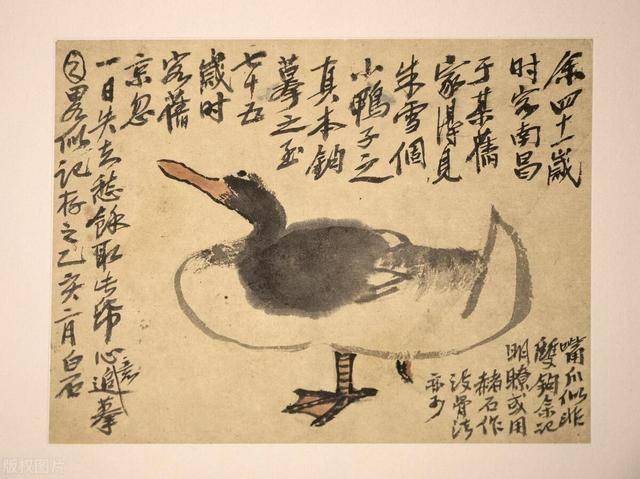 余四十一歲
时客南昌
于某舊
家得見
朱雪個
小鴨子之
真本鈎
摹之至
七十五
歲时
客舊
京忽
一日失去愁餘取此帋心意追摹
之畧似記存之乙亥二月白石
嘴爪似非
雙鈎余記
明瞭或用
赭石作
没骨法
版权图片